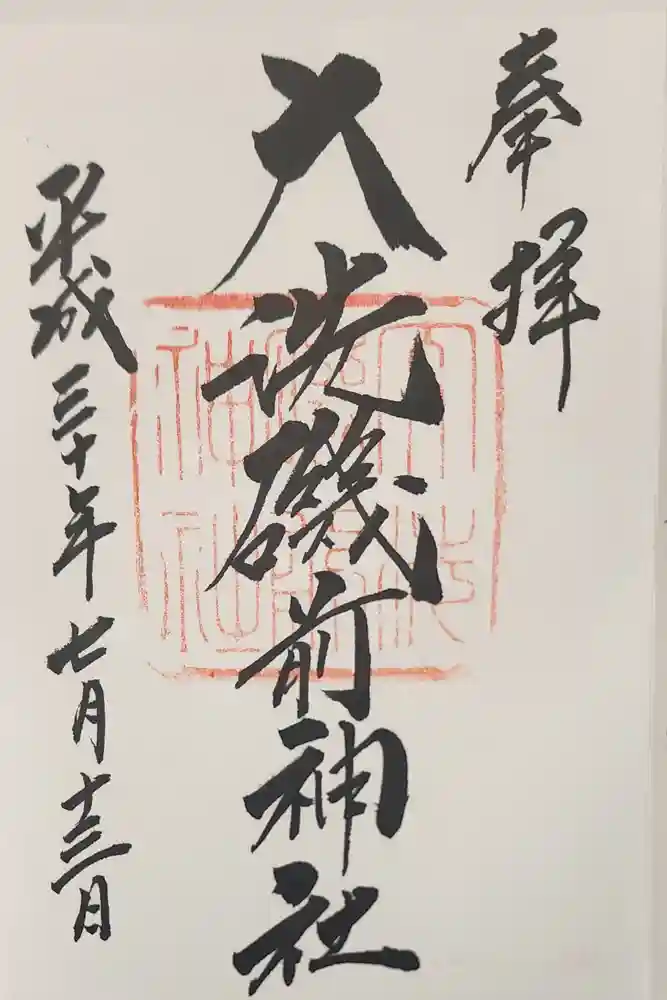 奉拝
大洗磯前神社
平成三十年七月十三日